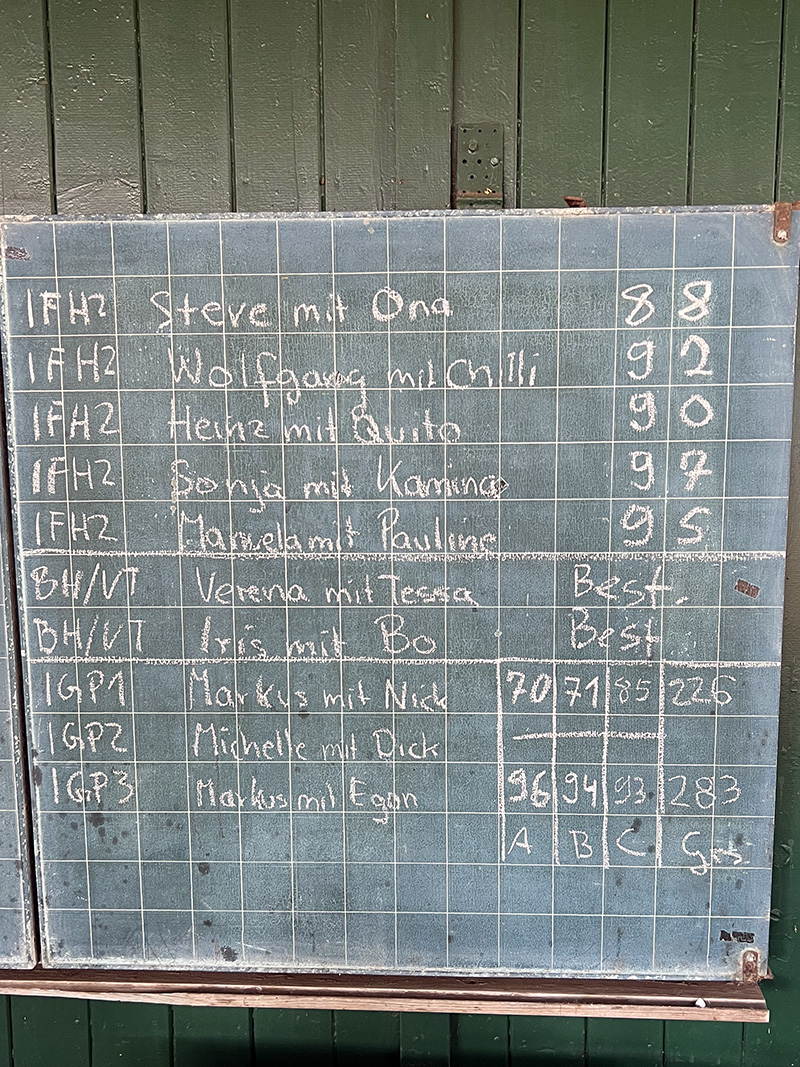 IFH2 Steve mit Ona 88
IFH2 Wolfgang mit Chilli 92
IFH2 Heinz mit Quito 90
IFH2 Sonja mit Kamina 97
IFH2 Manuela mit Pauline 95
BH/VT Verena mit Tessa Best.
BH/VT Iris mit Bo Best
IGP1 Markus mit Nick 70 71 85 226
IGP2 Michelle mit Dick —
IGP3 Markus mit Egon 96 94 93 283
A B C Ges.